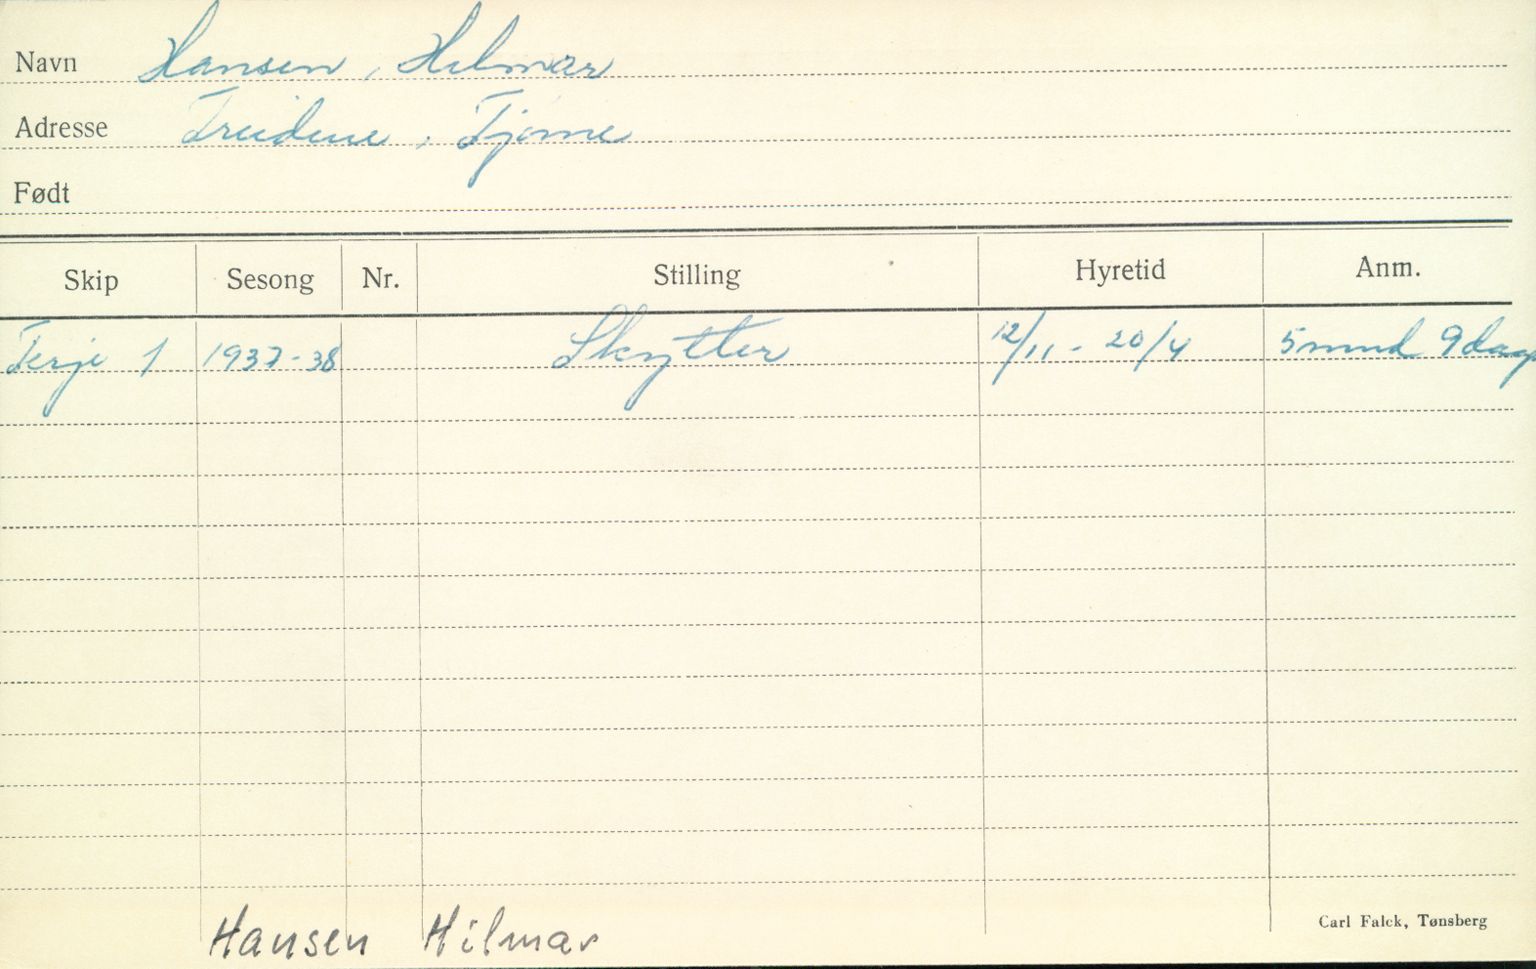 Navn Hansen, Hilmar
Adresse Treidene, Tjøme
Født
Skip Sesong Nr. Stilling Hyretid Anm.
Terje 1 1937-38 Skytter 12/11 - 20/4 5 mnd 9 dag
Hansen Hilmar
Carl Falck, Tønsberg